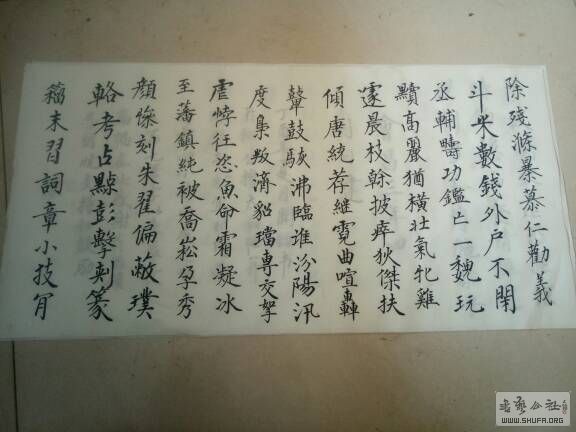 除殘滌暴慕仁勸義
斗米數錢外戶不閉
丞輔疇功鑑亡一魏玩
黷高麗猶橫壯氣牝雞
遽晨枝榦披瘁狄傑扶
傾唐統荐繼霓曲喧轟
鼙鼓駭沸臨淮汾陽汛
度梟叛滴貂璫專交挐
虐悖狂恣魚命霜凝冰
至藩鎮純被喬崧孕秀
顏刻朱翟偏蔽璞
輅考占點彭擊刺篆
籀末習詞章小技
書法公社
WWW.SHUFA.ORG